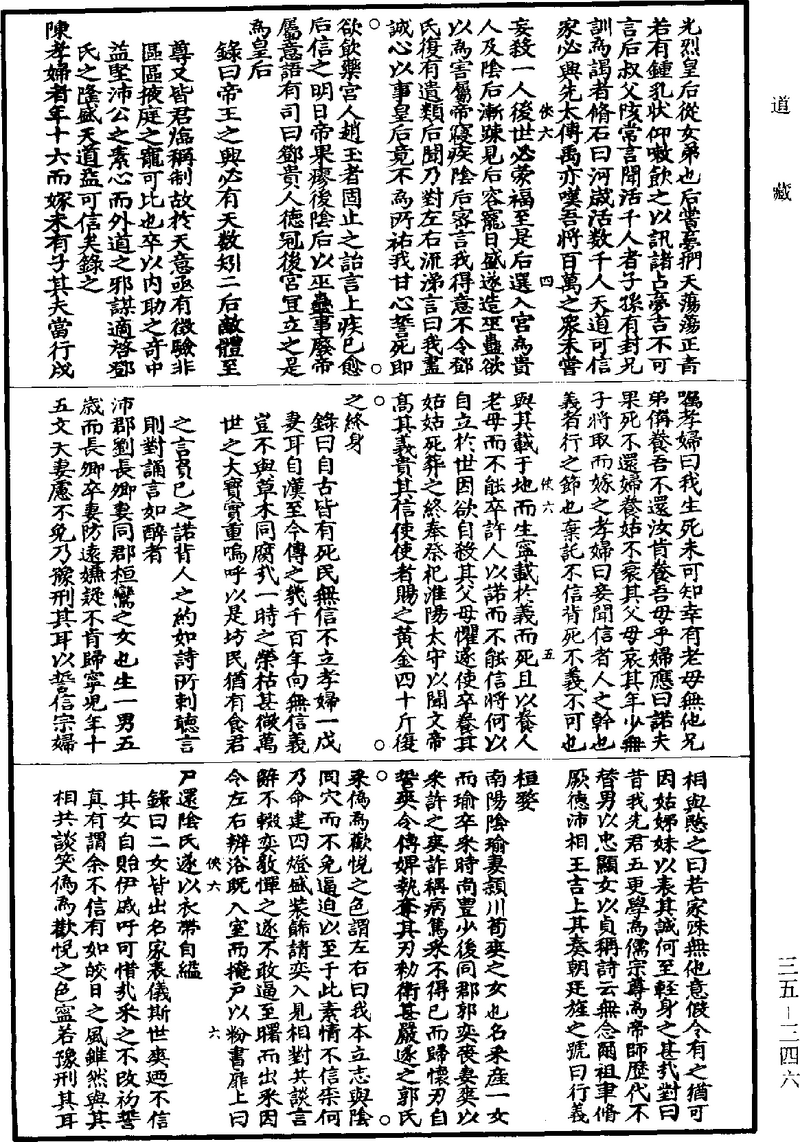 道藏
三五—二四六
光烈皇后從女弟也后嘗夢捫天蕩蕩正青
若有鍾乳狀仰嗽飲之以訊諸占夢吉不可
言后叔父陔常言聞活千人者子孫有封兄
訓為謁者脩石臼河歲活數千人天道可信
家必興先太傅禹亦嘆吾將百萬之衆未嘗
妄殺一人後世必蒙福至是后選入宮為貴
俠六 四
人及陰后漸踈見后容寵日盛遂造巫蠱欲
以為害屬帝寢疾陰后密言我得意不令鄧
氏復有遺類后聞乃對左右流涕言曰我盡
誠心以事皇后竟不為所祐我甘心誓死即
欲飲藥宮人趙玉者固止之詒言上疾已愈
后信之明日帝果瘳後陰后以巫蠱事廢帝
屬意語有司曰鄧貴人德冠後宮宜立之是
為皇后
錄曰帝王之興必有天数矧二后敵體至
尊又皆君臨稱制故於天意亟有徵驗非
區區掖庭之寵可比也卒以内助之奇中
益堅沛公之素心而外道之邪謀適啓鄧
氏之隆盛天道益可信矣錄之
陳孝婦者年十六而嫁未有子其夫當行戍
囑孝婦曰我生死未可知幸有老母無他兄
弟偹養吾不還汝肯養吾母乎婦應曰諾夫
果死不還婦養姑不衰其父母哀其年少無
子將取而嫁之孝婦曰妾聞信者人之幹也
義者行之節也棄託不信背死不義不可也
俠六 五
與其載于地而生寧載於義而死且以養人
老母而不能卒許人以諾而不能信將何以
自立於世因欲自殺其父母懼遂使卒養其
姑姑死葬之終奉祭祀淮陽太守以聞文帝
高其義貴其信使使者賜之黄金四十斤復
之終身
錄曰自古皆有死民無信不立孝婦一戍
妻耳自漢至今傳之幾千百年向無信義
豈不與草木同腐哉一時之榮枯甚微萬
世之大寶實重嗚呼以是坊民猶有食君
之言負已之諾背人之約如詩所刺聽言
則對誦言如醉者
沛郡劉長卿妻同郡桓鸞之女也生一男五
歲而長卿卒妻防遠嫌疑不肯歸寧兒年十
五文夭妻慮不免乃豫刑其耳以誓信宗婦
相與愍之曰若家殊無他意假令有之猶可
因姑姊妹以表其誠何至輕身之甚哉對曰
昔我先君五更學為儒宗尊為帝師歷代不
替男以忠顯女以貞稱詩云無念爾祖聿脩
厥德沛相王吉上其奏朝廷旌之號曰行義
桓嫠
南陽陰瑜妻頴川荀爽之女也名采産一女
而瑜卒采時尚豐少後同郡郭奕喪妻爽以
采許之爽詐稱病篤采不得已而歸懷刃自
誓爽令傅婢執奪其刃勑衛甚嚴遂之郭氏
采僞為歡悅之色謂左右曰我本立志與陰
同穴而不免逼迫以至于此素情不信柰何
乃命建四燈盛裝飾請奕入見相對共談言
辭不輟奕敬憚之遂不敢逼至曙而出采因
令左右辨浴既入室而掩戸以粉書扉上曰
俠六 六
尸還陰氏遂以衣帶自縊
錄曰二女皆出名家表儀斯世爽廼不信
其女自貽伊戚吁可惜哉采之不改初誓
真有謂余不信有如皎日之風雖然與其
相共談笑僞為歡悅之色寧若豫刑其耳